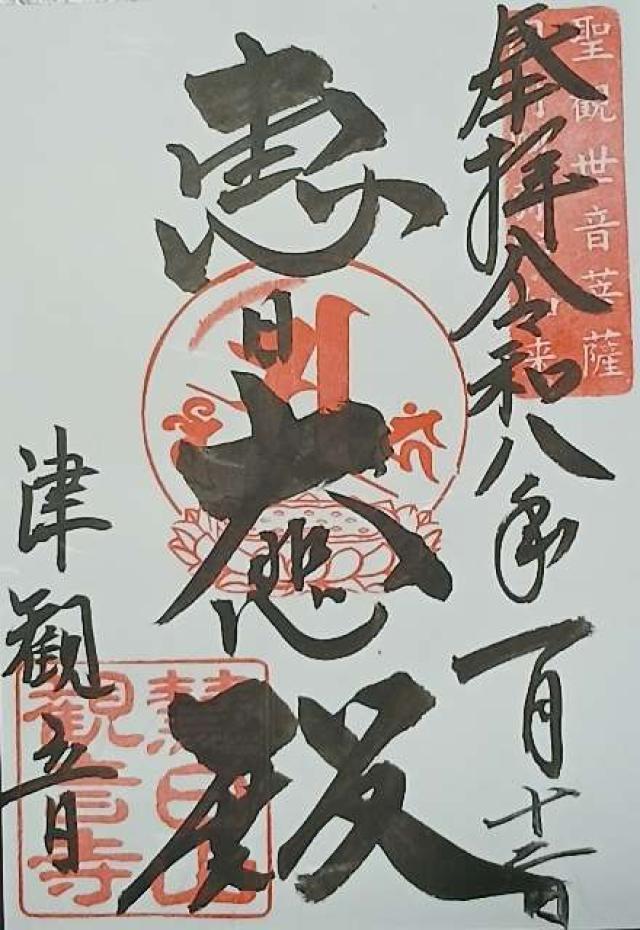 聖観世音菩薩
奉拝 令和八年一月十二日
恵日大悲殿
津観音
慧日山
観音寺